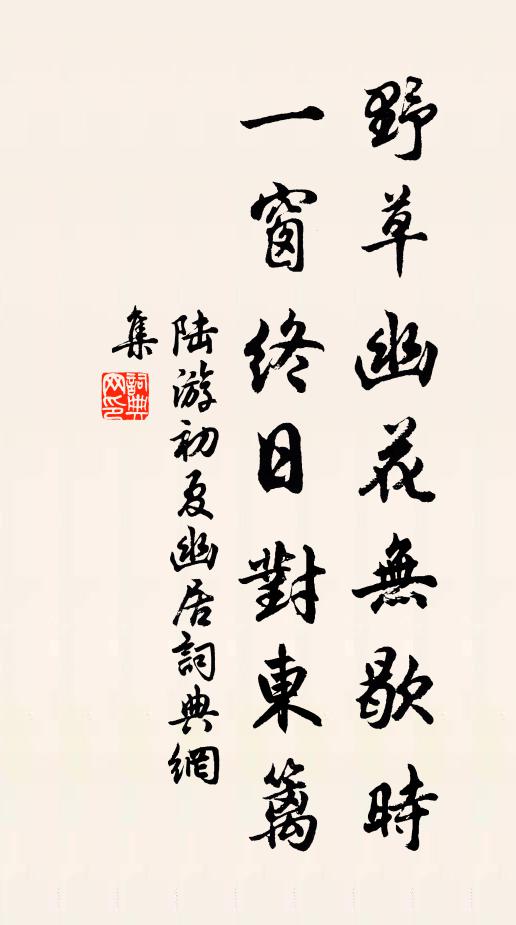 野草幽花無歇時
一窗終日對東籬
陸游初夏幽居詞典網
集
詞典網印